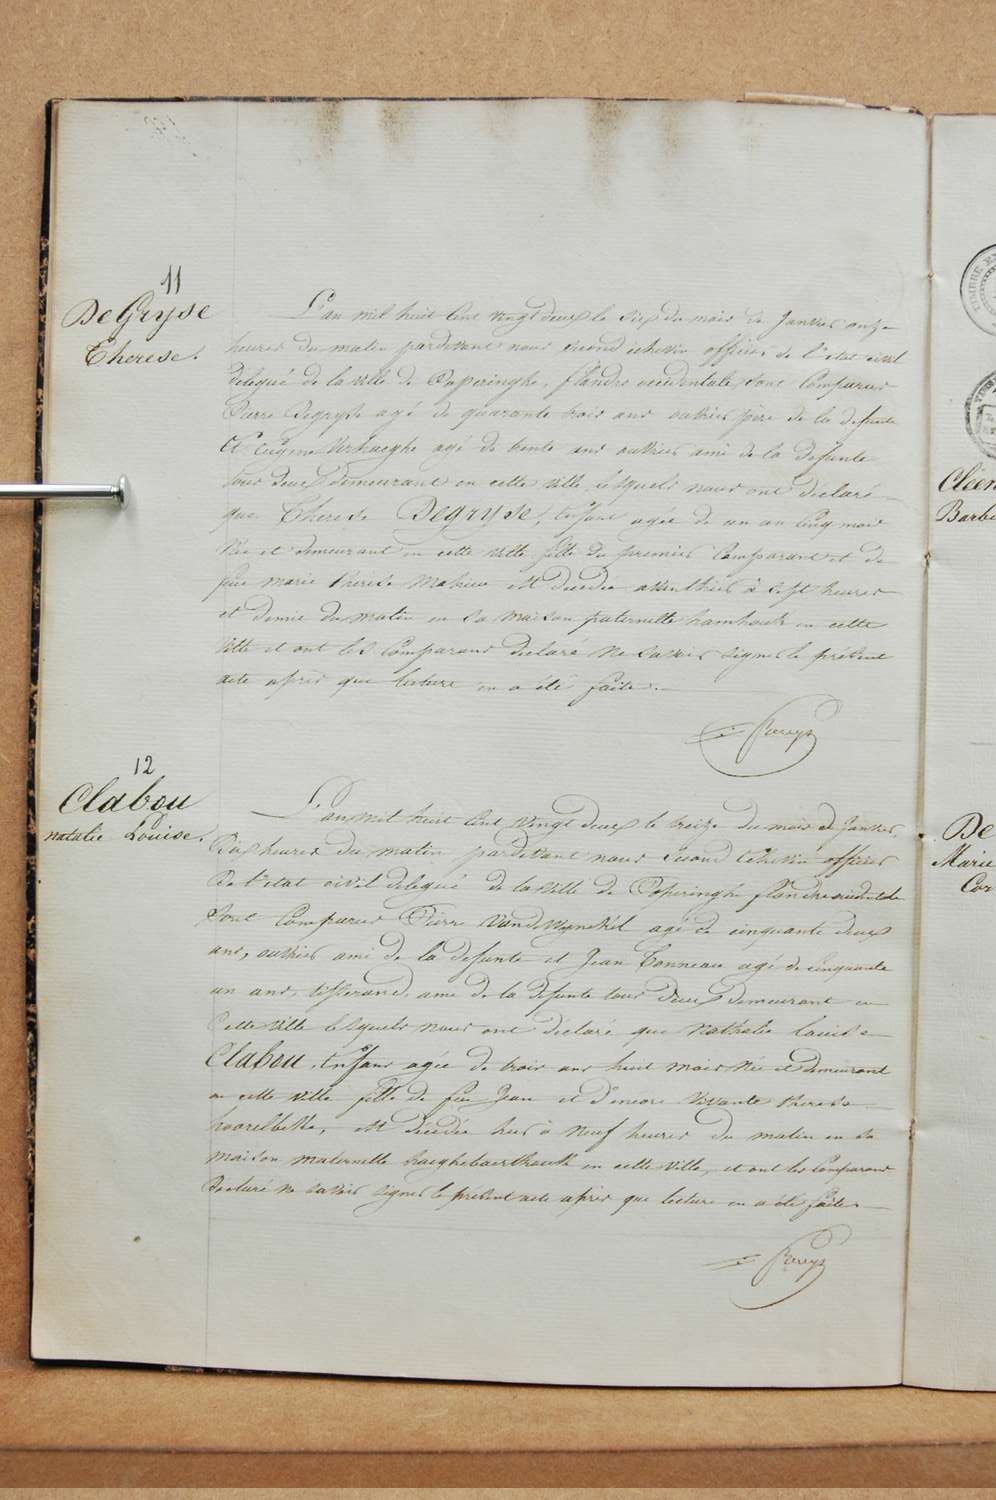 11
DeGryse
Therese.
L'an mil huit cent vingt deux le dix du mois de Janvier onze
heures du matin pardevant nous second échevin officier de l'état civil
delegué de la ville de Poperinghe, flandre occidentale, sont comparus
Pierre Degryse agé de quarante trois ans ouvrier père de la defunte
et Eugène Verhaeghe agé de trente ans ouvrier ami de la defunte
tous deux demeurant en cette ville, lesquels nous ont déclaré
que Therese Degryse, enfant agée de un an cinq mois
Née et demeurant en cette ville fille du premier comparant et de
feue marie Therese Mahieu est decédée avanthier à sept heures
et demie du matin en sa maison paternelle hamhoek en cette
ville et ont les comparans declaré ne savoir signer le présent
acte après que lecture en a été faite.
Bereys
12
Clabou
natalie Louise.
L'an mil huit cent vingt deux le treize du mois de Janvier,
Dix heures du matin pardevant nous second échevin officier
De l'état civil delegué de la ville de Poperinghe flandre occidentale
sont comparus Pierre Vandewynckel agé de cinquante deux
ans, ouvrier ami de la defunte et Jean Tonneau agé de cinquante
un ans, tisserand, ami de la defunte tous deux demeurant en
Cette ville lesquels nous ont déclaré que Nathalie Louise
Clabou, enfant agée de trois ans huit mois Née et demeurant
en cette ville fille de feu Jean et d'encore vivante therese
hoorelbeke, est décédée hier à neuf heures du matin en sa
maison maternelle haeghebaerthoek en cette ville, et ont les comparans
Declaré ne savoir signer le présent acte après que lecture en a été faite
Bereys
Cleen
Barbe
De
Marie
Cor